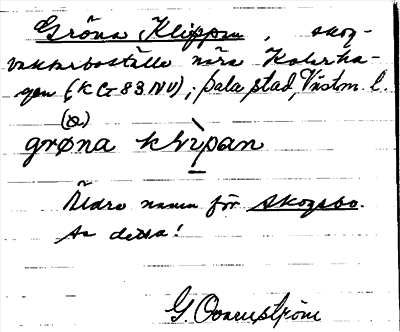 Gröna Klippan, skog-
vaktarboställe nära Kolarha-
gen (KG 83 NV); Sala stad, Västm. l.
(ɷ)
grøna klìpan
Äldre namn för Skogsbo.
Se detta!
G. Ovnerström